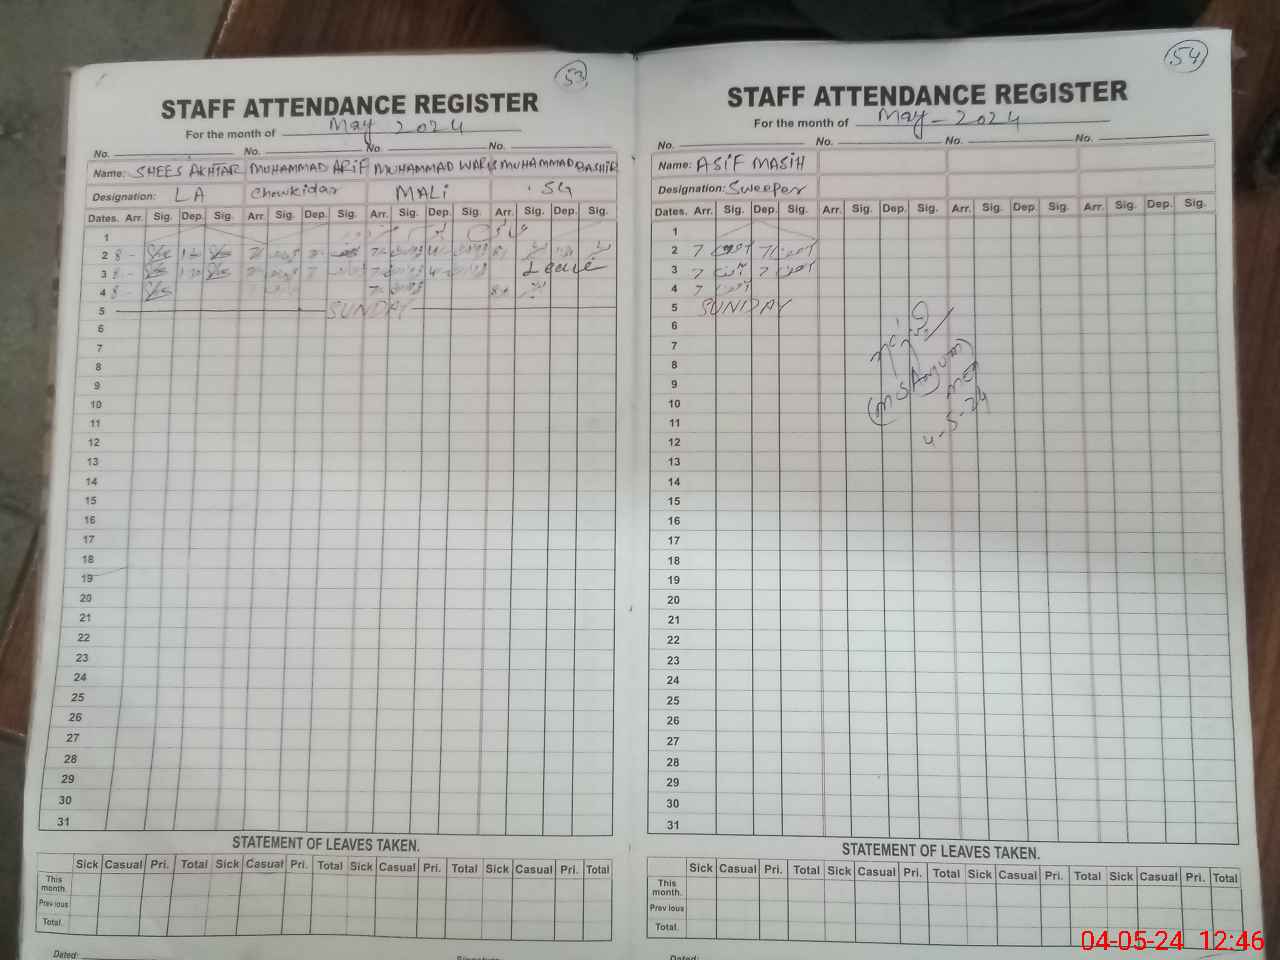 53
STAFF ATTENDANCE REGISTER
For the month of May 2024
No. No. No. No.
Name: SHEES AKHTAR MUHAMMAD ARIF MUHAMMAD WARIS MUHAMMAD BASHIR
Designation: LA Chowkidar MALI
Dates. Arr. Sig. Dep. Sig. Arr. Sig. Dep. Sig. Arr. Sig. Dep. Sig. Arr. Sig. Dep. Sig.
1
2 8 -
3 8 - Leave
4 8 -
5 SUNDAY
6
7
8
9
10
11
12
13
14
15
16
17
18
19
20
21
22
23
24
25
26
27
28
29
30
31
STATEMENT OF LEAVES TAKEN.
Sick Casual Pri. Total Sick Casual Pri. Total Sick Casual Pri. Total Sick Casual Pri. Total
This month.
Previous
Total.
Dated: Signature
54
STAFF ATTENDANCE REGISTER
For the month of May - 2024
No. No. No.
Name: ASIF MASIH
Designation: Sweeper
Dates. Arr. Sig. Dep. Sig. Arr. Sig. Dep. Sig. Arr. Sig. Dep. Sig. Arr. Sig. Dep. Sig.
1
2 7 آصف 7 آصف
3 7 آصف 7 آصف
4 7 آصف
5 SUNDAY
6
7
8
9
10
11
12
13
14
15
16
17
18
19
20
21
22
23
24
25
26
27
28
29
30
31
4-5-24
STATEMENT OF LEAVES TAKEN.
Sick Casual Pri. Total Sick Casual Pri. Total Sick Casual Pri. Total Sick Casual Pri. Total
This month.
Previous
Total.
Dated:
04-05-24 12:46